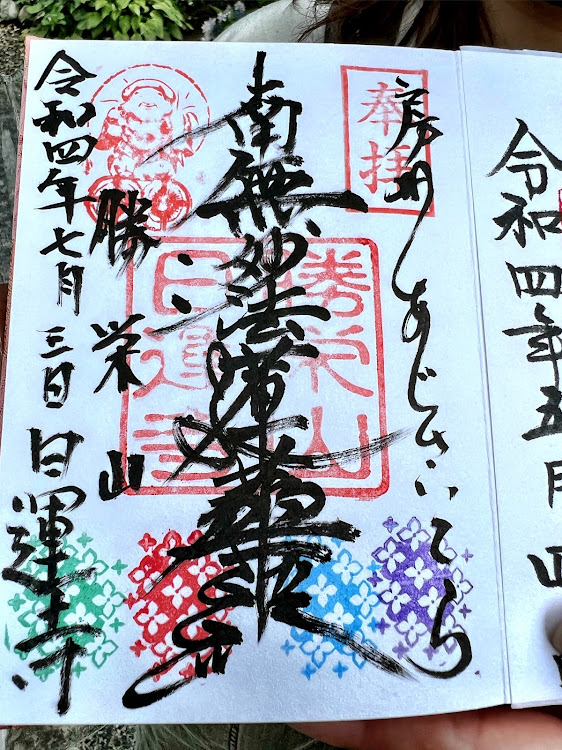 奉拝
房州あじさいでら
南無妙法蓮華経
勝栄山
日運寺
勝栄山
令和四年七月三日
日運寺
令和四年五月四